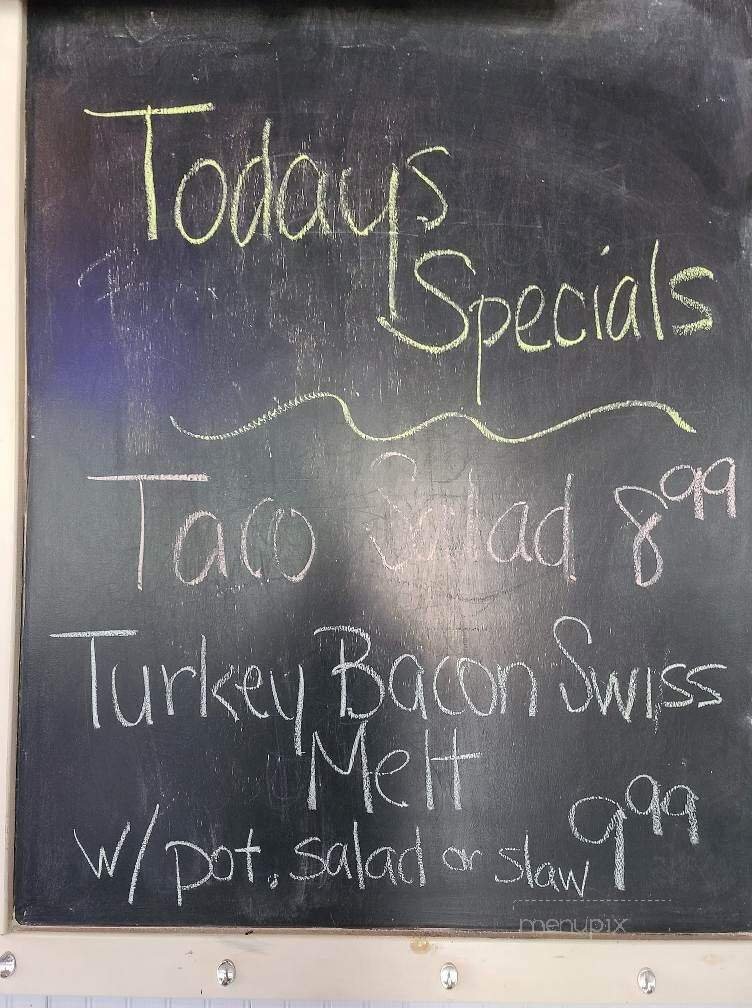 Todays
Specials
Taco Salad 8 99
Turkey Bacon Swiss
Melt
w/ pot. salad or slaw 9 99
menupix